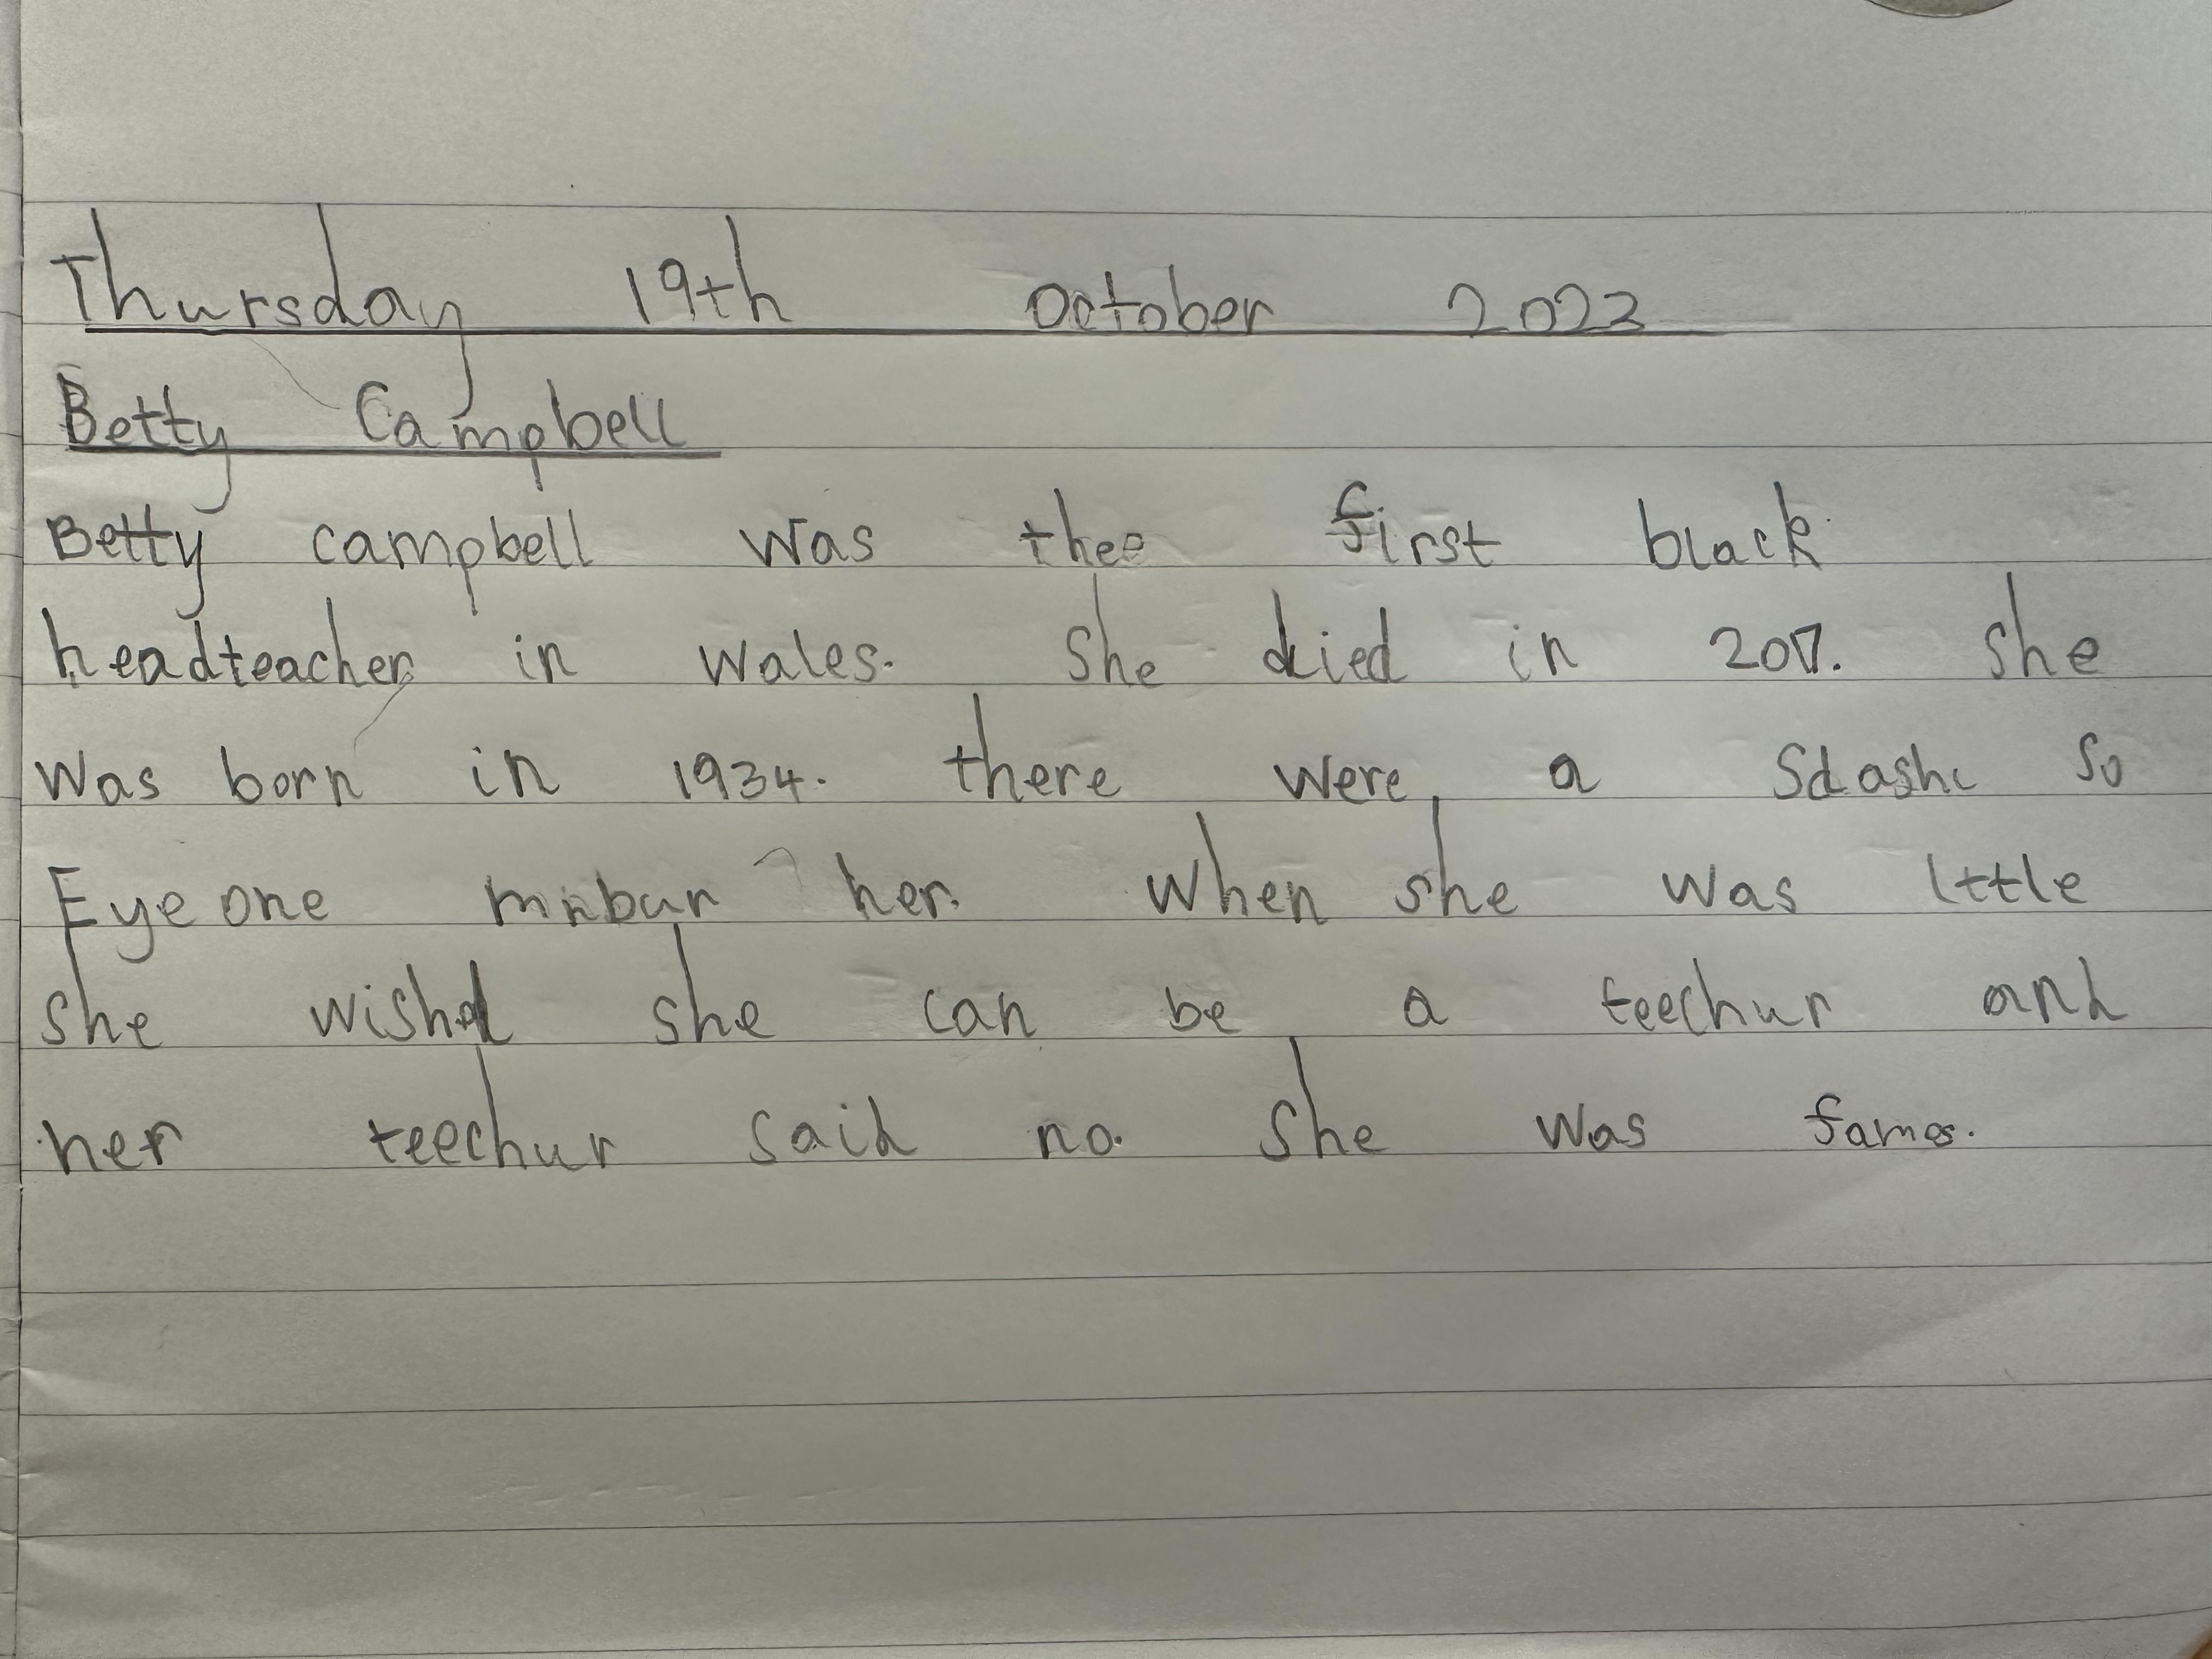 Thursday 19th October 2023
Betty Campbell
Betty campbell was thee first black
headteacher in wales. She died in 2017. She
was born in 1934. there were a Sdashc so
Eyeone mnbur her. when she was lttle
she wishd she can be a teechur and
her teechur said no. She was famos.